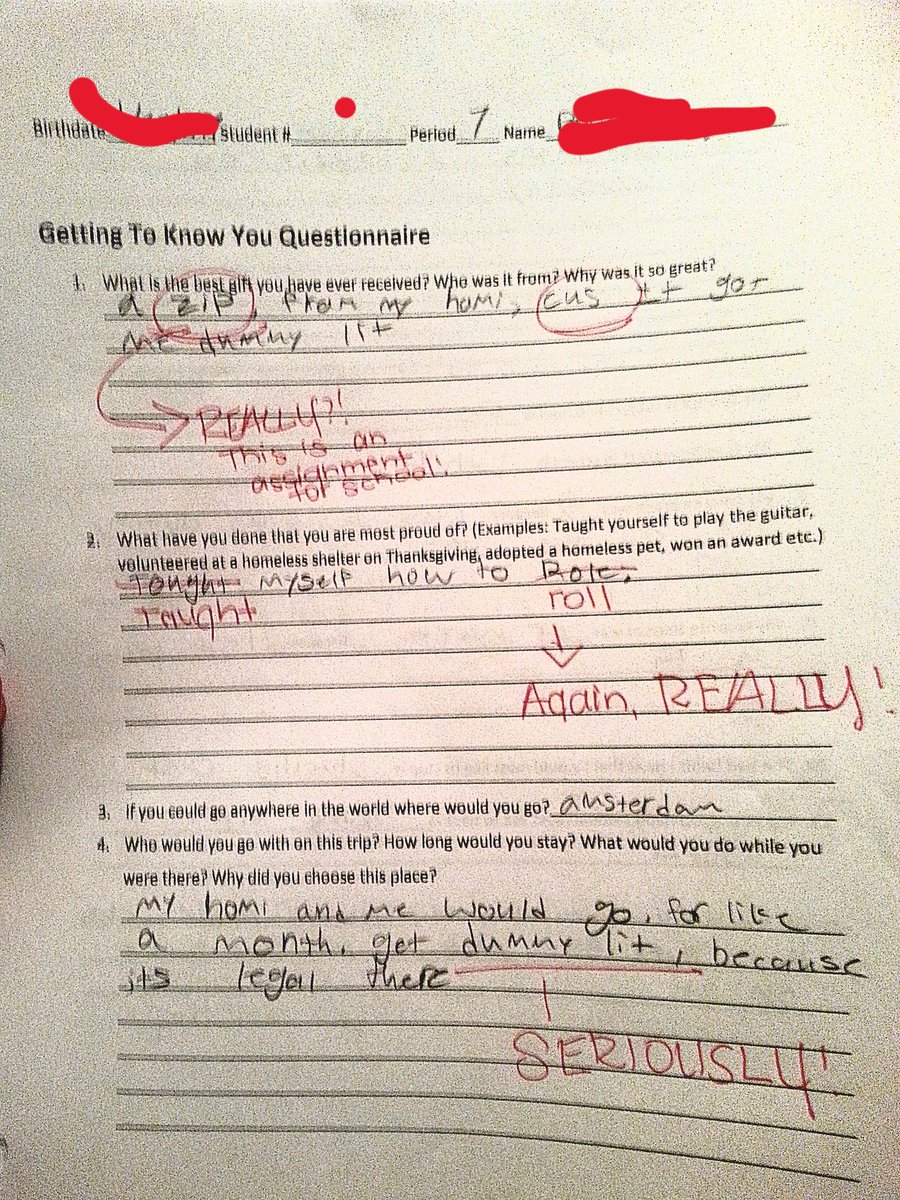 Birthdate Student # Period 7 Name
Getting To Know You Questionnaire
1. What is the best gift you have ever received? Who was it from? Why was it so great?
a zip, from my homi, cus it got
me dummy lit
REALLY?!
This is an
assignment
for school!
2. What have you done that you are most proud of? (Examples: Taught yourself to play the guitar,
volunteered at a homeless shelter on Thanksgiving, adopted a homeless pet, won an award etc.)
Tought myself how to Role.
Taught roll
Again, REALLY!
3. If you could go anywhere in the world where would you go? amsterdam
4. Who would you go with on this trip? How long would you stay? What would you do while you
were there? Why did you choose this place?
my homi and me would go, for like
a month. get dummy lit, because
its legal there
SERIOUSLY!